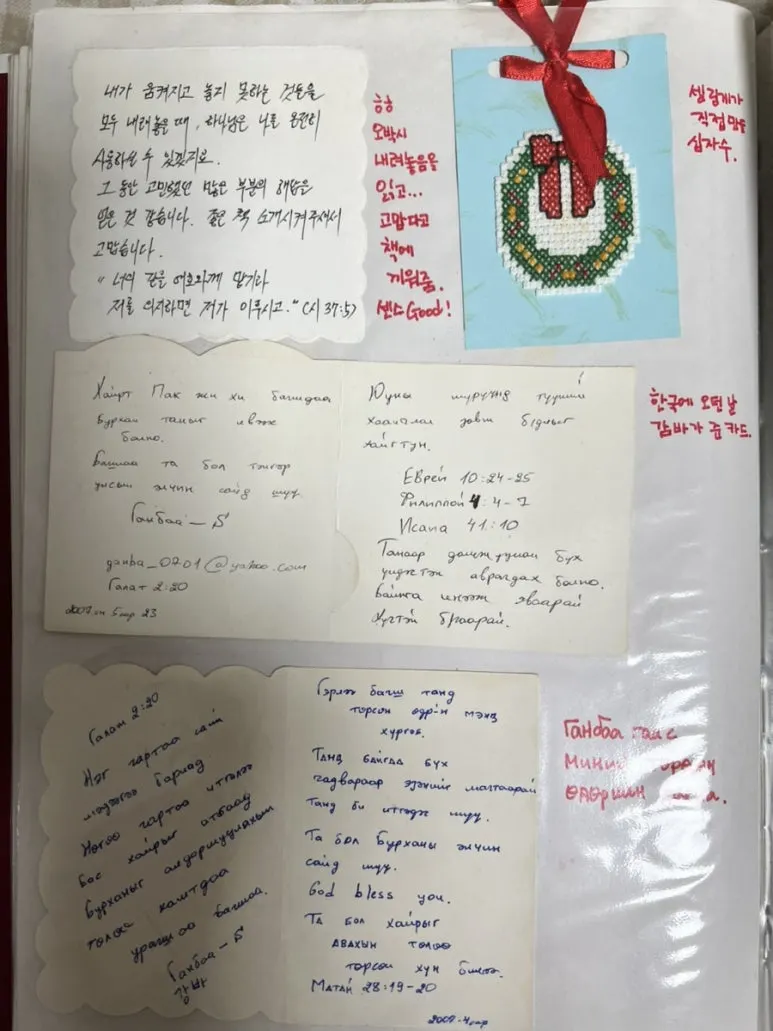 내가 움켜지고 놓지 못하는 것들을
모두 내려놓을 때, 하나님은 나를 온전히
사용하실 수 있겠지요.
그 동안 고민했던 많은 부분의 해답을
얻은 것 같습니다. 좋은 책 소개시켜주셔서
고맙습니다.
"너의 길을 여호와께 맡기라
저를 의지하면 저가 이루시고." (시 37:5)
ㅎㅎ
오박시
내려놓음을
읽고...
고맙다고
책에
끼워줌.
센스 Good!
직접 만든
십자수.
Хайрт Пак жи хи багшдаа
Бурхан таныг ивээх
болно.
Багшаа та бол тэнгэр
улсын элчин сайд шүү
Ганбаа-
ganba_0701@yahoo.com
Галат 2:20
2007 он 5 сар 23
Юуны түүний
хаанчлал зөвт
хайгтун.
Еврей 10:24-25
Филиппой 4:4-7
Исаиа 41:10
Танаар бүх
үндэстэн аврагдах болно.
Байнга инээж яваарай
한국에 오던 날
감바가 준 카드.
Галат 2:20
Нэг гартаа сайн
мэдээгээ бариад
Нөгөө гартаа итгэлээ
бас хайрыг атгаад
Бурханыг алдоршуулахын
төлөө хамтдаа
урагшаа багшаа.
Ганбаа-
감바
Гэрлээ багш танд
төрсөн өдрийн мэнд
хүргэе.
Танд байгаа бүх
чадвараар эзэнийг магтаарай
Танд би итгэдэг шүү.
Та бол Бурханы элчин
сайд шүү.
God bless you.
Та бол хайрыг
авахын төлөө
төрсөн хүн билээ.
Матай 28:19-20
2007-4 сар
Ганбаа гаас
Миний
өдөрийн